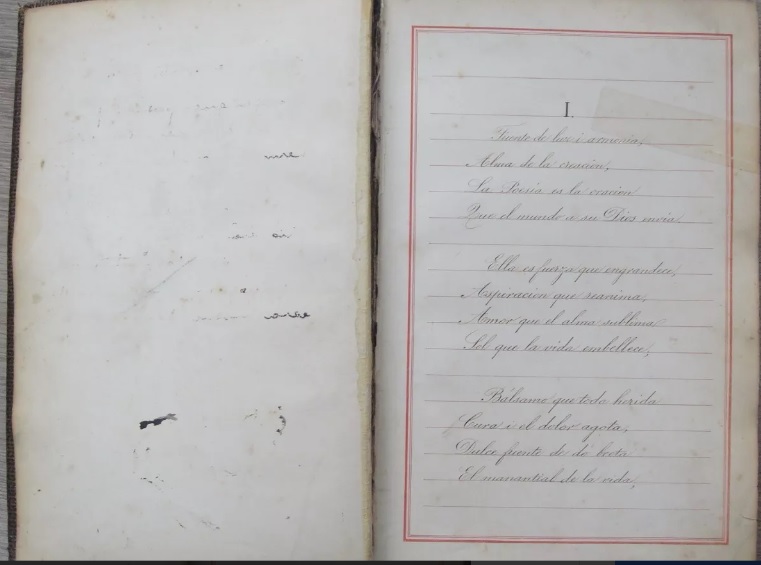 I.
Fuente de luz i armonia,
Alma de la creacion,
La Poesía es la oracion
Que el mundo a su Dios envia.
Ella es fuerza que engrandece,
Aspiracion que reanima,
Amor que el alma sublima
Sol que la vida embellece,
Bálsamo que toda herida
Cura i el dolor agota,
Dulce fuente de dó brota
El manantial de la vida,